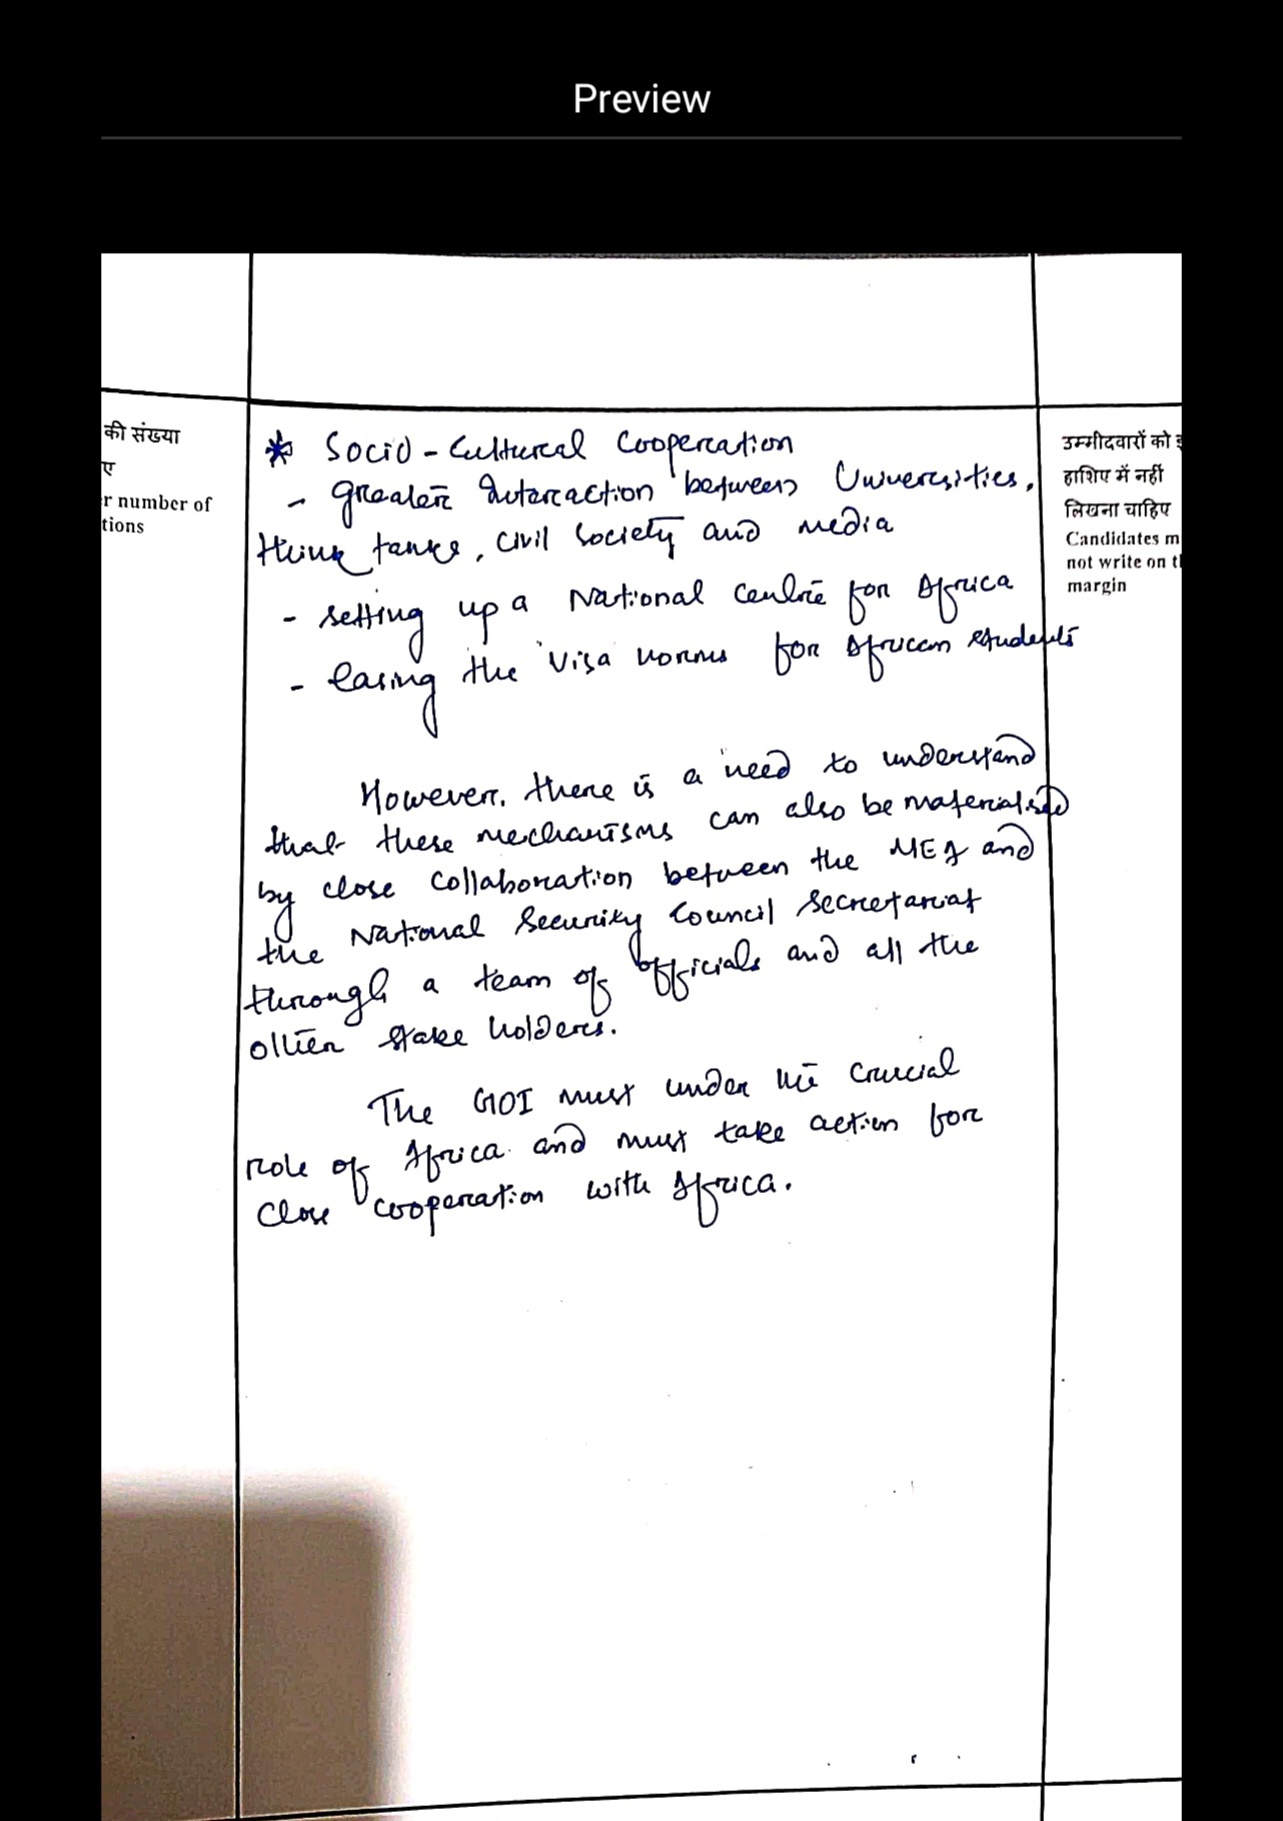 Preview
की संख्या
ए
r number of
tions
* Socio-Cultural Cooperation
- greater Interaction between Universities,
think tanks, civil society and media
- setting up a National Centre for Africa
- easing the visa norms for African students
However, there is a need to understand
that these mechanisms can also be materialised
by close collaboration between the MEA and
the National Security Council Secretariat
through a team of officials and all the
other stake holders.
The GOI must under the crucial
role of Africa and must take action for
close cooperation with Africa.
उम्मीदवारों को इ
हाशिए में नहीं
लिखना चाहिए
Candidates m
not write on t
margin